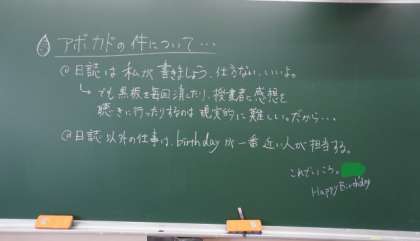 アボカドの件について…
@日誌は私が書きましょう。仕方ない、いいよ。
↳でも黒板を毎回消したり、授業者に感想を
聴きに行ったりするのは現実的に難しい。だから…
@日誌以外の仕事は、birthdayが一番近い人が担当する。
これでいこう。
Happy Birthday